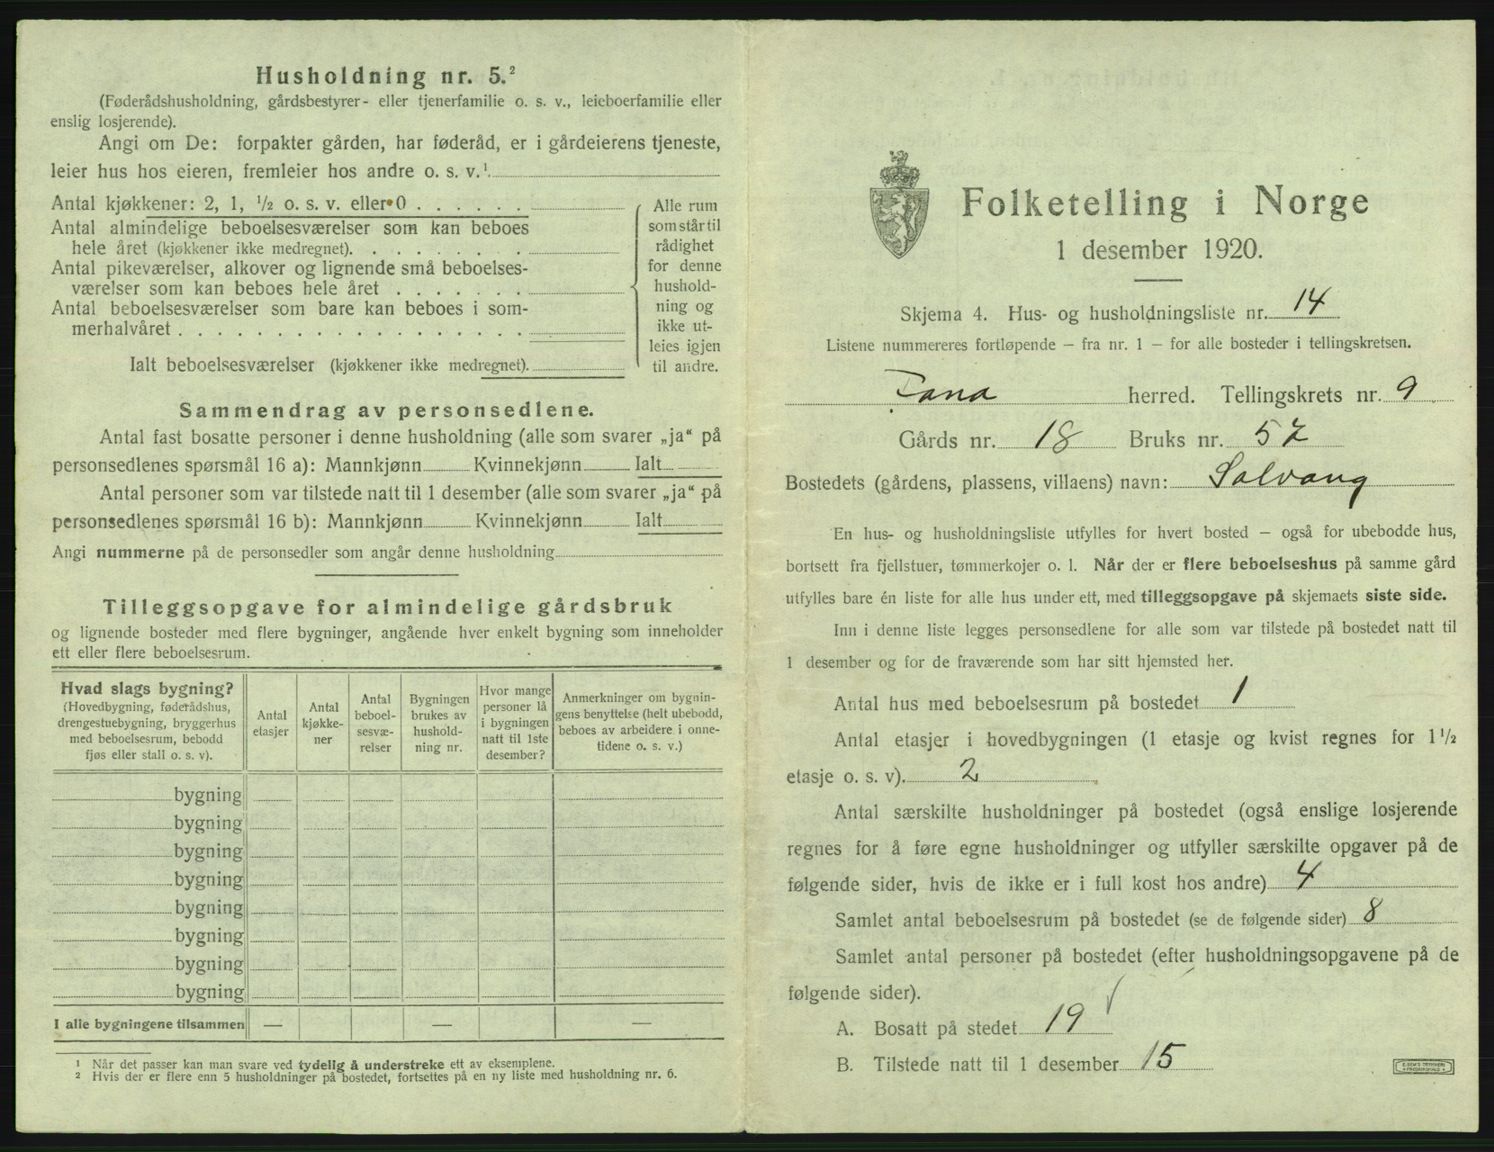 Husholdning nr. 5.²
(Føderådshusholdning, gårdsbestyrer- eller tjenerfamilie o. s. v., leieboerfamilie eller
enslig losjerende).
Angi om De: forpakter gården, har føderåd, er i gårdeierens tjeneste,
leier hus hos eieren, fremleier hos andre o. s. v.¹
Antal kjøkkener: 2, 1, ½ o. s. v. eller 0 . . . . . .
Antal almindelige beboelsesværelser som kan beboes
hele året (kjøkkener ikke medregnet). . . . . . . .
Antal pikeværelser, alkover og lignende små beboelses-
værelser som kan beboes hele året . . . . . . .
Antal beboelsesværelser som bare kan beboes i som-
merhalvåret . . . . . . . . . . . . . . . . .
Ialt beboelsesværelser (kjøkkener ikke medregnet).
Alle rum
som står til
rådighet
for denne
hushold-
ning og
ikke ut-
leies igjen
til andre.
Sammendrag av personsedlene.
Antal fast bosatte personer i denne husholdning (alle som svarer „ja“ på
personsedlenes spørsmål 16 a): Mannkjønn Kvinnekjønn Ialt
Antal personer som var tilstede natt til 1 desember (alle som svarer „ja“ på
personsedlenes spørsmål 16 b): Mannkjønn Kvinnekjønn Ialt
Angi nummerne på de personsedler som angår denne husholdning
Tilleggsopgave for almindelige gårdsbruk
og lignende bosteder med flere bygninger, angående hver enkelt bygning som inneholder
ett eller flere beboelsesrum.
Hvad slags bygning?
(Hovedbygning, føderådshus,
drengestuebygning, bryggerhus
med beboelsesrum, bebodd
fjøs eller stall o. s. v).
Antal
etasjer
Antal
kjøkke-
ner
Antal
beboel-
sesvæ-
relser
Bygningen
brukes av
hushold-
ning nr.
Hvor mange
personer lå
i bygningen
natt til 1ste
desember?
Anmerkninger om bygnin-
gens benyttelse (helt ubebodd,
beboes av arbeidere i onne-
tidene o. s. v.)
bygning
bygning
bygning
bygning
bygning
bygning
bygning
bygning
I alle bygningene tilsammen — — —
¹ Når det passer kan man svare ved tydelig å understreke ett av eksemplene.
² Hvis der er flere enn 5 husholdninger på bostedet, fortsettes på en ny liste med husholdning nr. 6.
Folketelling i Norge
1 desember 1920.
Skjema 4. Hus- og husholdningsliste nr. 14
Listene nummereres fortløpende – fra nr. 1 – for alle bosteder i tellingskretsen.
Fana herred. Tellingskrets nr. 9
Gårds nr. 18 Bruks nr. 57
Bostedets (gårdens, plassens, villaens) navn: Solvang
En hus- og husholdningsliste utfylles for hvert bosted – også for ubebodde hus,
bortsett fra fjellstuer, tømmerkojer o. l. Når der er flere beboelseshus på samme gård
utfylles bare én liste for alle hus under ett, med tilleggsopgave på skjemaets siste side.
Inn i denne liste legges personsedlene for alle som var tilstede på bostedet natt til
1 desember og for de fraværende som har sitt hjemsted her.
Antal hus med beboelsesrum på bostedet 1
Antal etasjer i hovedbygningen (1 etasje og kvist regnes for 1 ½
etasje o. s. v). 2
Antal særskilte husholdninger på bostedet (også enslige losjerende
regnes for å føre egne husholdninger og utfyller særskilte opgaver på de
følgende sider, hvis de ikke er i full kost hos andre) 4
Samlet antal beboelsesrum på bostedet (se de følgende sider) 8
Samlet antal personer på bostedet (efter husholdningsopgavene på de
følgende sider).
A. Bosatt på stedet 19
B. Tilstede natt til 1 desember 15